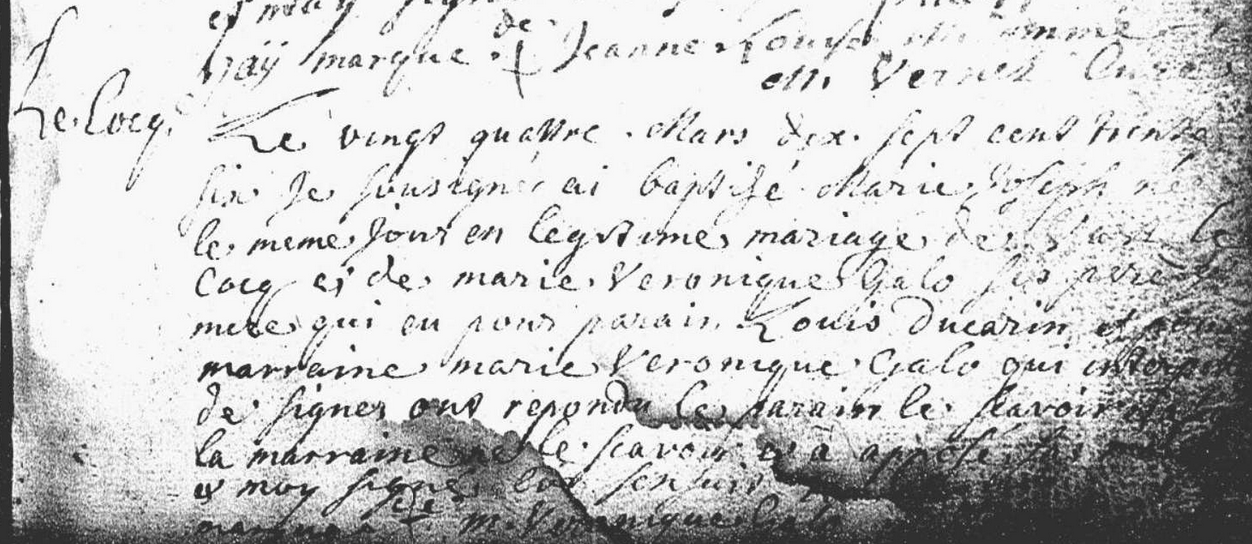 et moy
jay marque de Jeanne Louise
M. Vernet Cure
Le Cocq
Le vingt quattre Mars dix sept cent trente
six Je sousigné ai baptisé Marie Joseph née
le meme Jour en legitime mariage de le
Cocq et de marie Veronique Galo ses pere et
mere qui eu pour parain Louis Ducarin et pour
marraine marie Veronique Galo qui
de signer ont repondu le parain le scavoir
la marraine ne le scavoir et a apposé sa
et moy signé
m. Veronique Galo